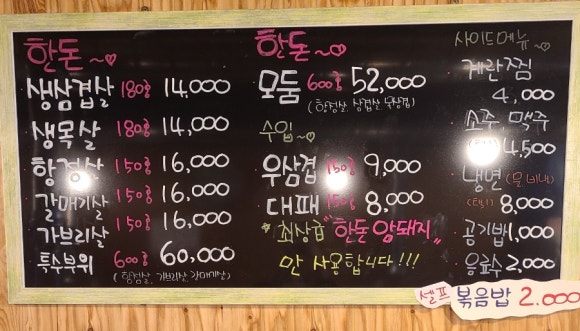 한돈~♡
생삼겹살 180g 14,000
생목살 180g 14,000
항정살 150g 16,000
갈매기살 150g 16,000
가브리살 150g 16,000
특수부위 600g 60,000
(항정살, 가브리살, 갈매기살)
한돈~♡
모둠 600g 52,000
(항정살, 삼겹살, 목살)
수입~♡
우삼겹 150g 9,000
대패 150g 8,000
* 최상급 "한돈 암돼지"
만 사용합니다!!!
사이드메뉴~♡
계란찜
4,000
소주, 맥주
4,500
냉면 (물,비냉)
8,000
공기밥 1,000
음료수 2,000
셀프 볶음밥 2.000